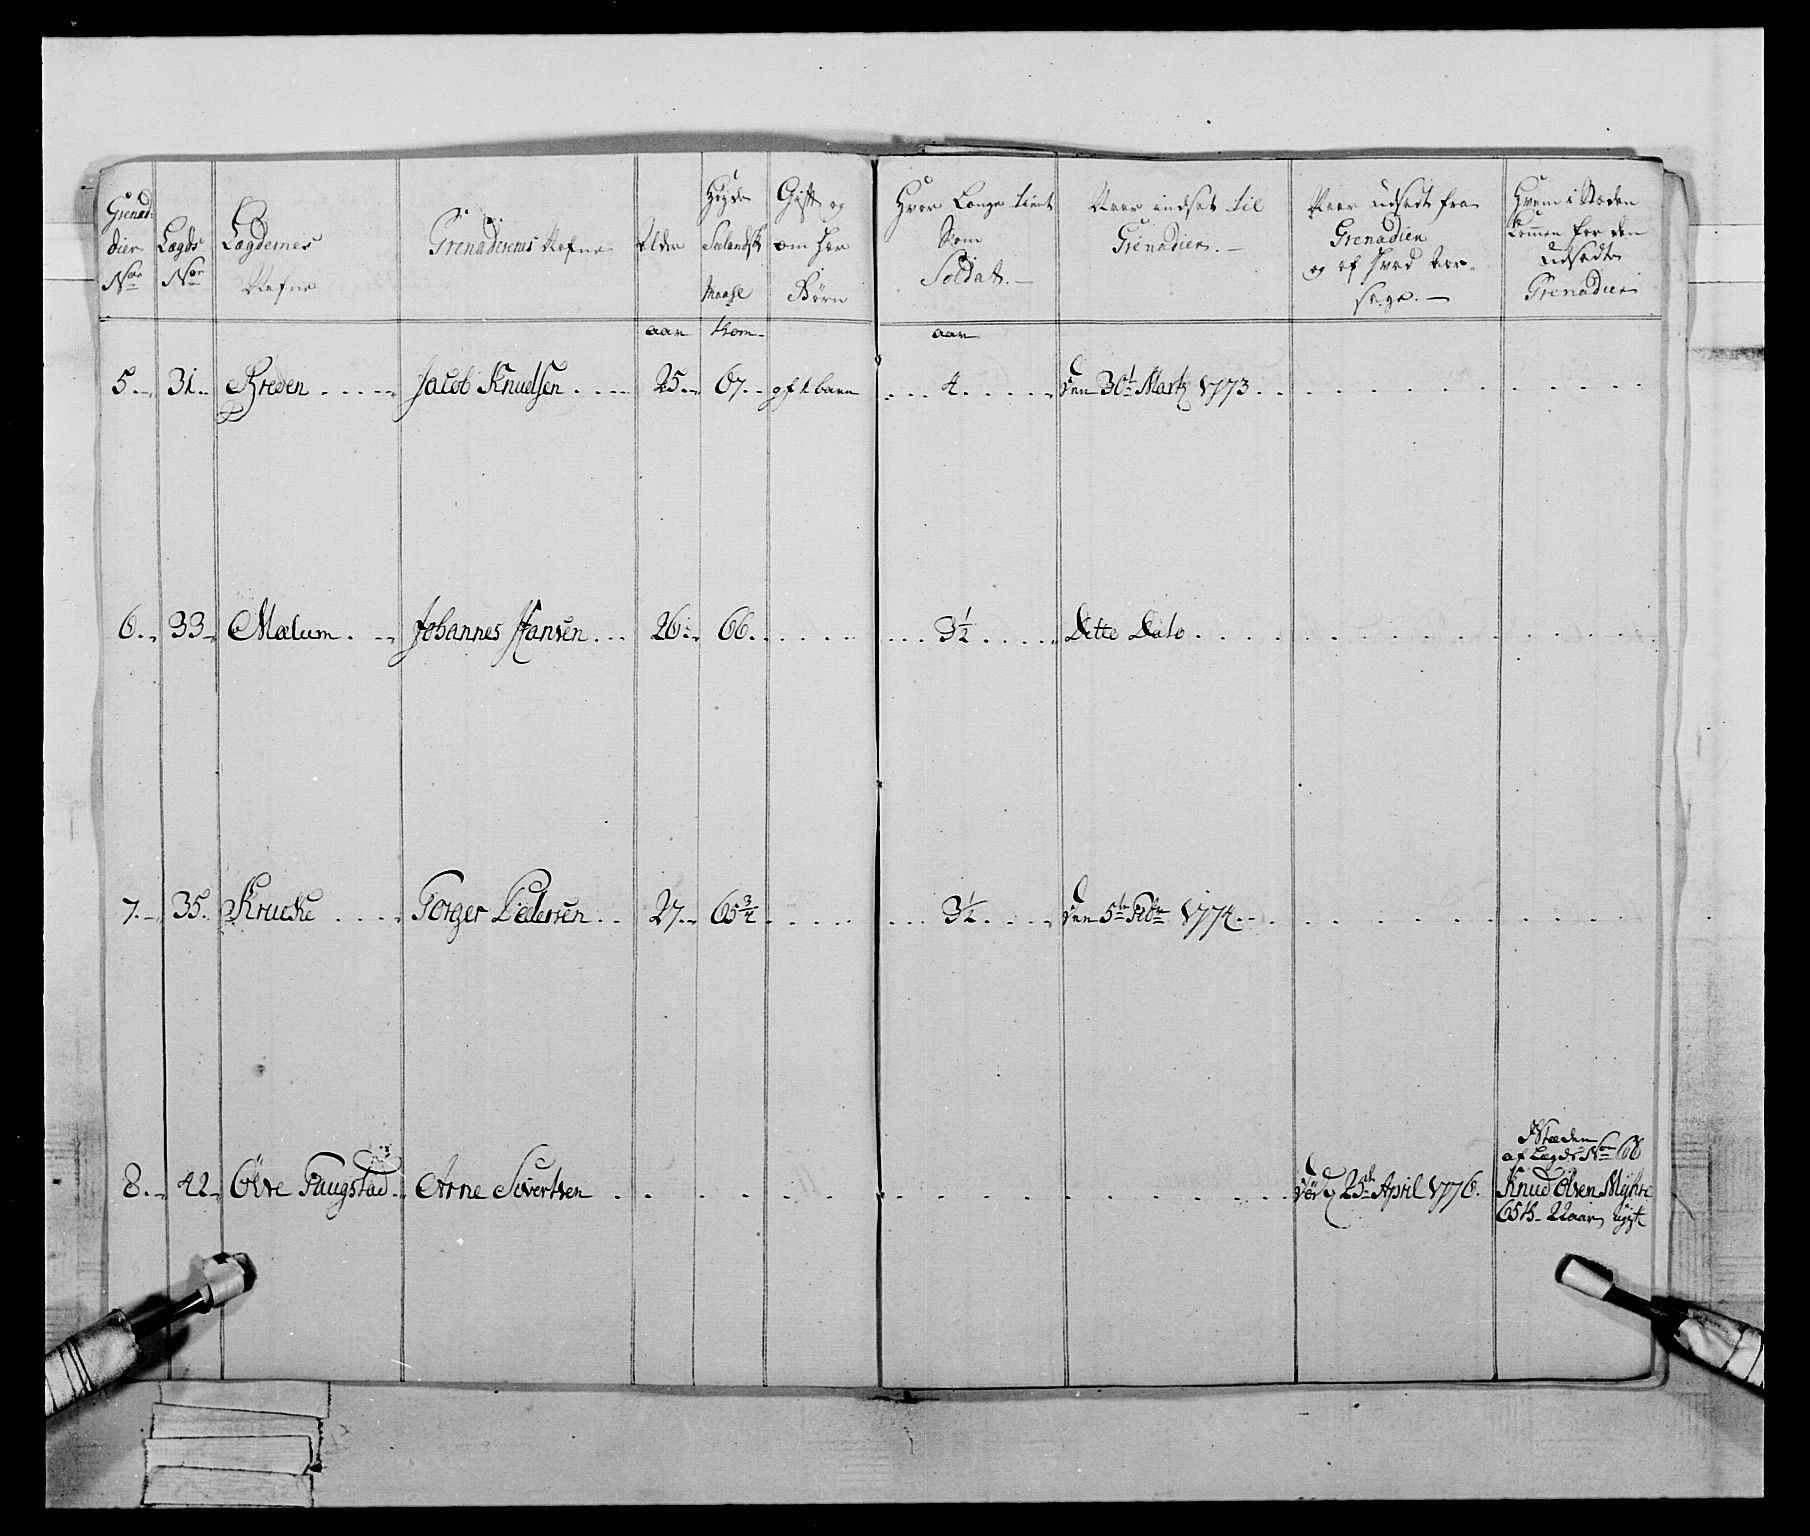 Grenad:
dier
Nor
Lægds
Nor
Lægdernes
Nafne
Grenadernes Nafne
Alder
Høyde
Seelandsk
Maahl
Gift og
om Har
Børn
Hvor Længe tient
Som
Soldat.
Naar indsat til
Grenadier.
Naar udsadt fra
Grenadier
og af Hvad Aar-
sage.
Hvem i Stæden
kommen for den
udsadte
Grenadier
aar
Tom-
aar
5. 31. Breden Jacob Knudsen 25. 67. gft 1 barn 4. den 30t Marty 1773.
6. 33. Mælum. Johannes Hansen 26. 66. 3½ Ditto Dato
7. 35. Krucke Torger Pedersen 27. 65¾ 3½ den 5te Febr 1774.
I Stæden
af Lægds Nor 68
8. 42. Øvre Faugstad Arne Sivertsen 25de April 1776. Knud Olsen Myhre
65 22 aar, ugift